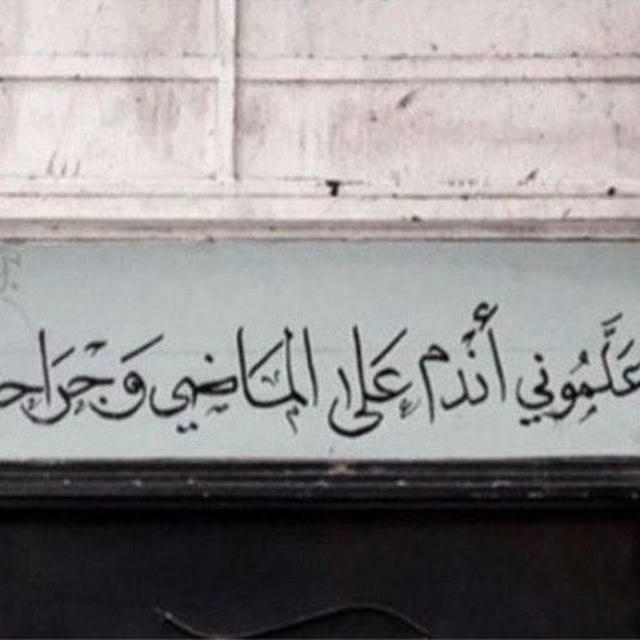 عَلَّمُوني أَندم عَلى المَاضِي وَجِرَاحـ